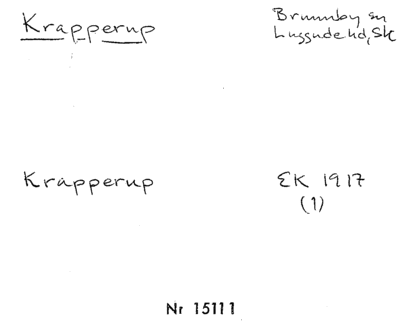 Krapperup
Brunnby sn
Luggude hd, Sk
Krapperup
EK 1917
(1)
Nr 15111